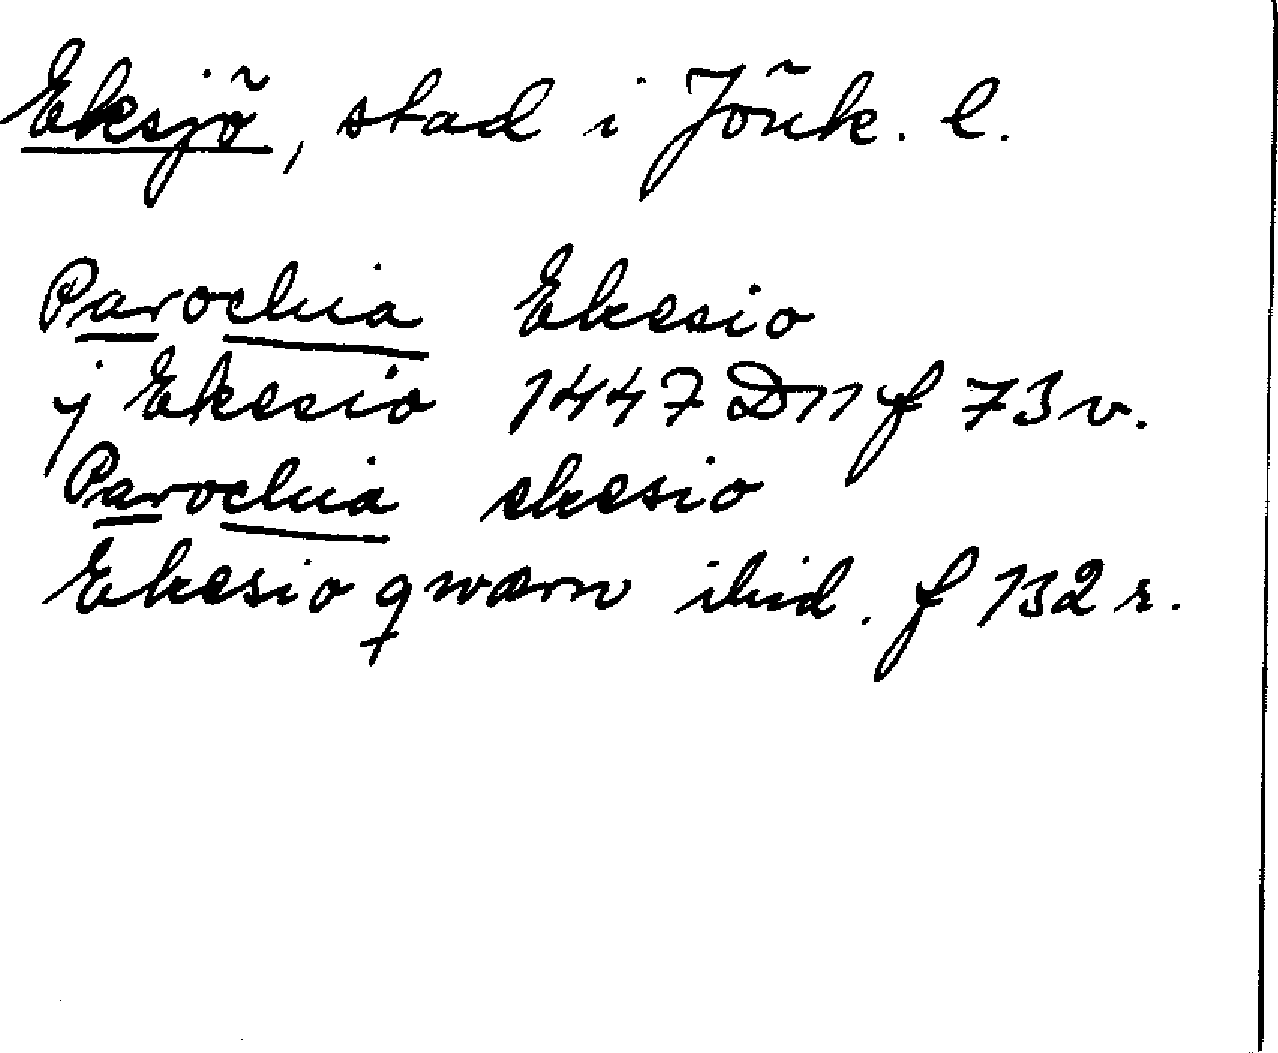 Eksjö, stad i Jönk. l.
Parochia Ekesio
j Ekesio 1447 D11 f 73 v.
Parochia ekesio
Ekesio qwærn ibid. f 132 r.